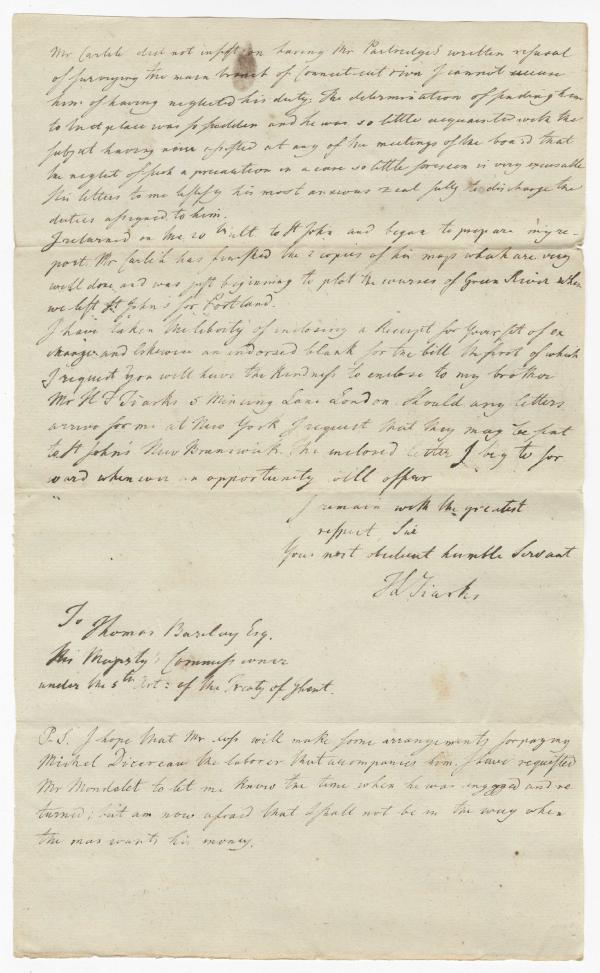 Mr Carlile did not insist on having Mr Partridge's written refusal
of surveying the main branch of Connecticut river I cannot accuse
him of having neglected his duty. The determination of sending him
to that place was so sudden and he was so little acquainted with the
subject having never assisted at any of the meetings of the board that
the neglect of such a precaution in a case so little foreseen is very excusable
His letters to me testify his most anxious zeal fully to discharge the
duties assigned to him.
I returned on the 20th ult to St John and began to prepare my re-
port. Mr Carlile has finished the 2 copies of his maps which are very
well done and was just beginning to plot the courses of Green River when
we left St John's for Portland.
I have taken the liberty of inclosing a Receipt for your set of ex
changes and likewise an indorsed blank for the bill the first of which
I request you will have the kindness to enclose to my brother
Mr H T Tiarks 5 Mincing Lane London. Should any letters
arrive for me at New York I request that they may be sent
to St John's New Brunswick. The inclosed letter I beg to for
ward whenever an opportunity will offer
I remain with the greatest
respect, Sir
Your most obedient humble Servant
J L Tiarks
To
Thomas Barclay Esq.
His Majesty's Commissioner
under the 5th Art: of the Treaty of Ghent.
P.S. I hope that Mr will make some arrangements for paying
Michel the laborer that accompanies him. I have requested
Mr Mondalet to let me know the time when he was engaged and re
turned; but am now afraid that I shall not be in the way when
the man wants his money.